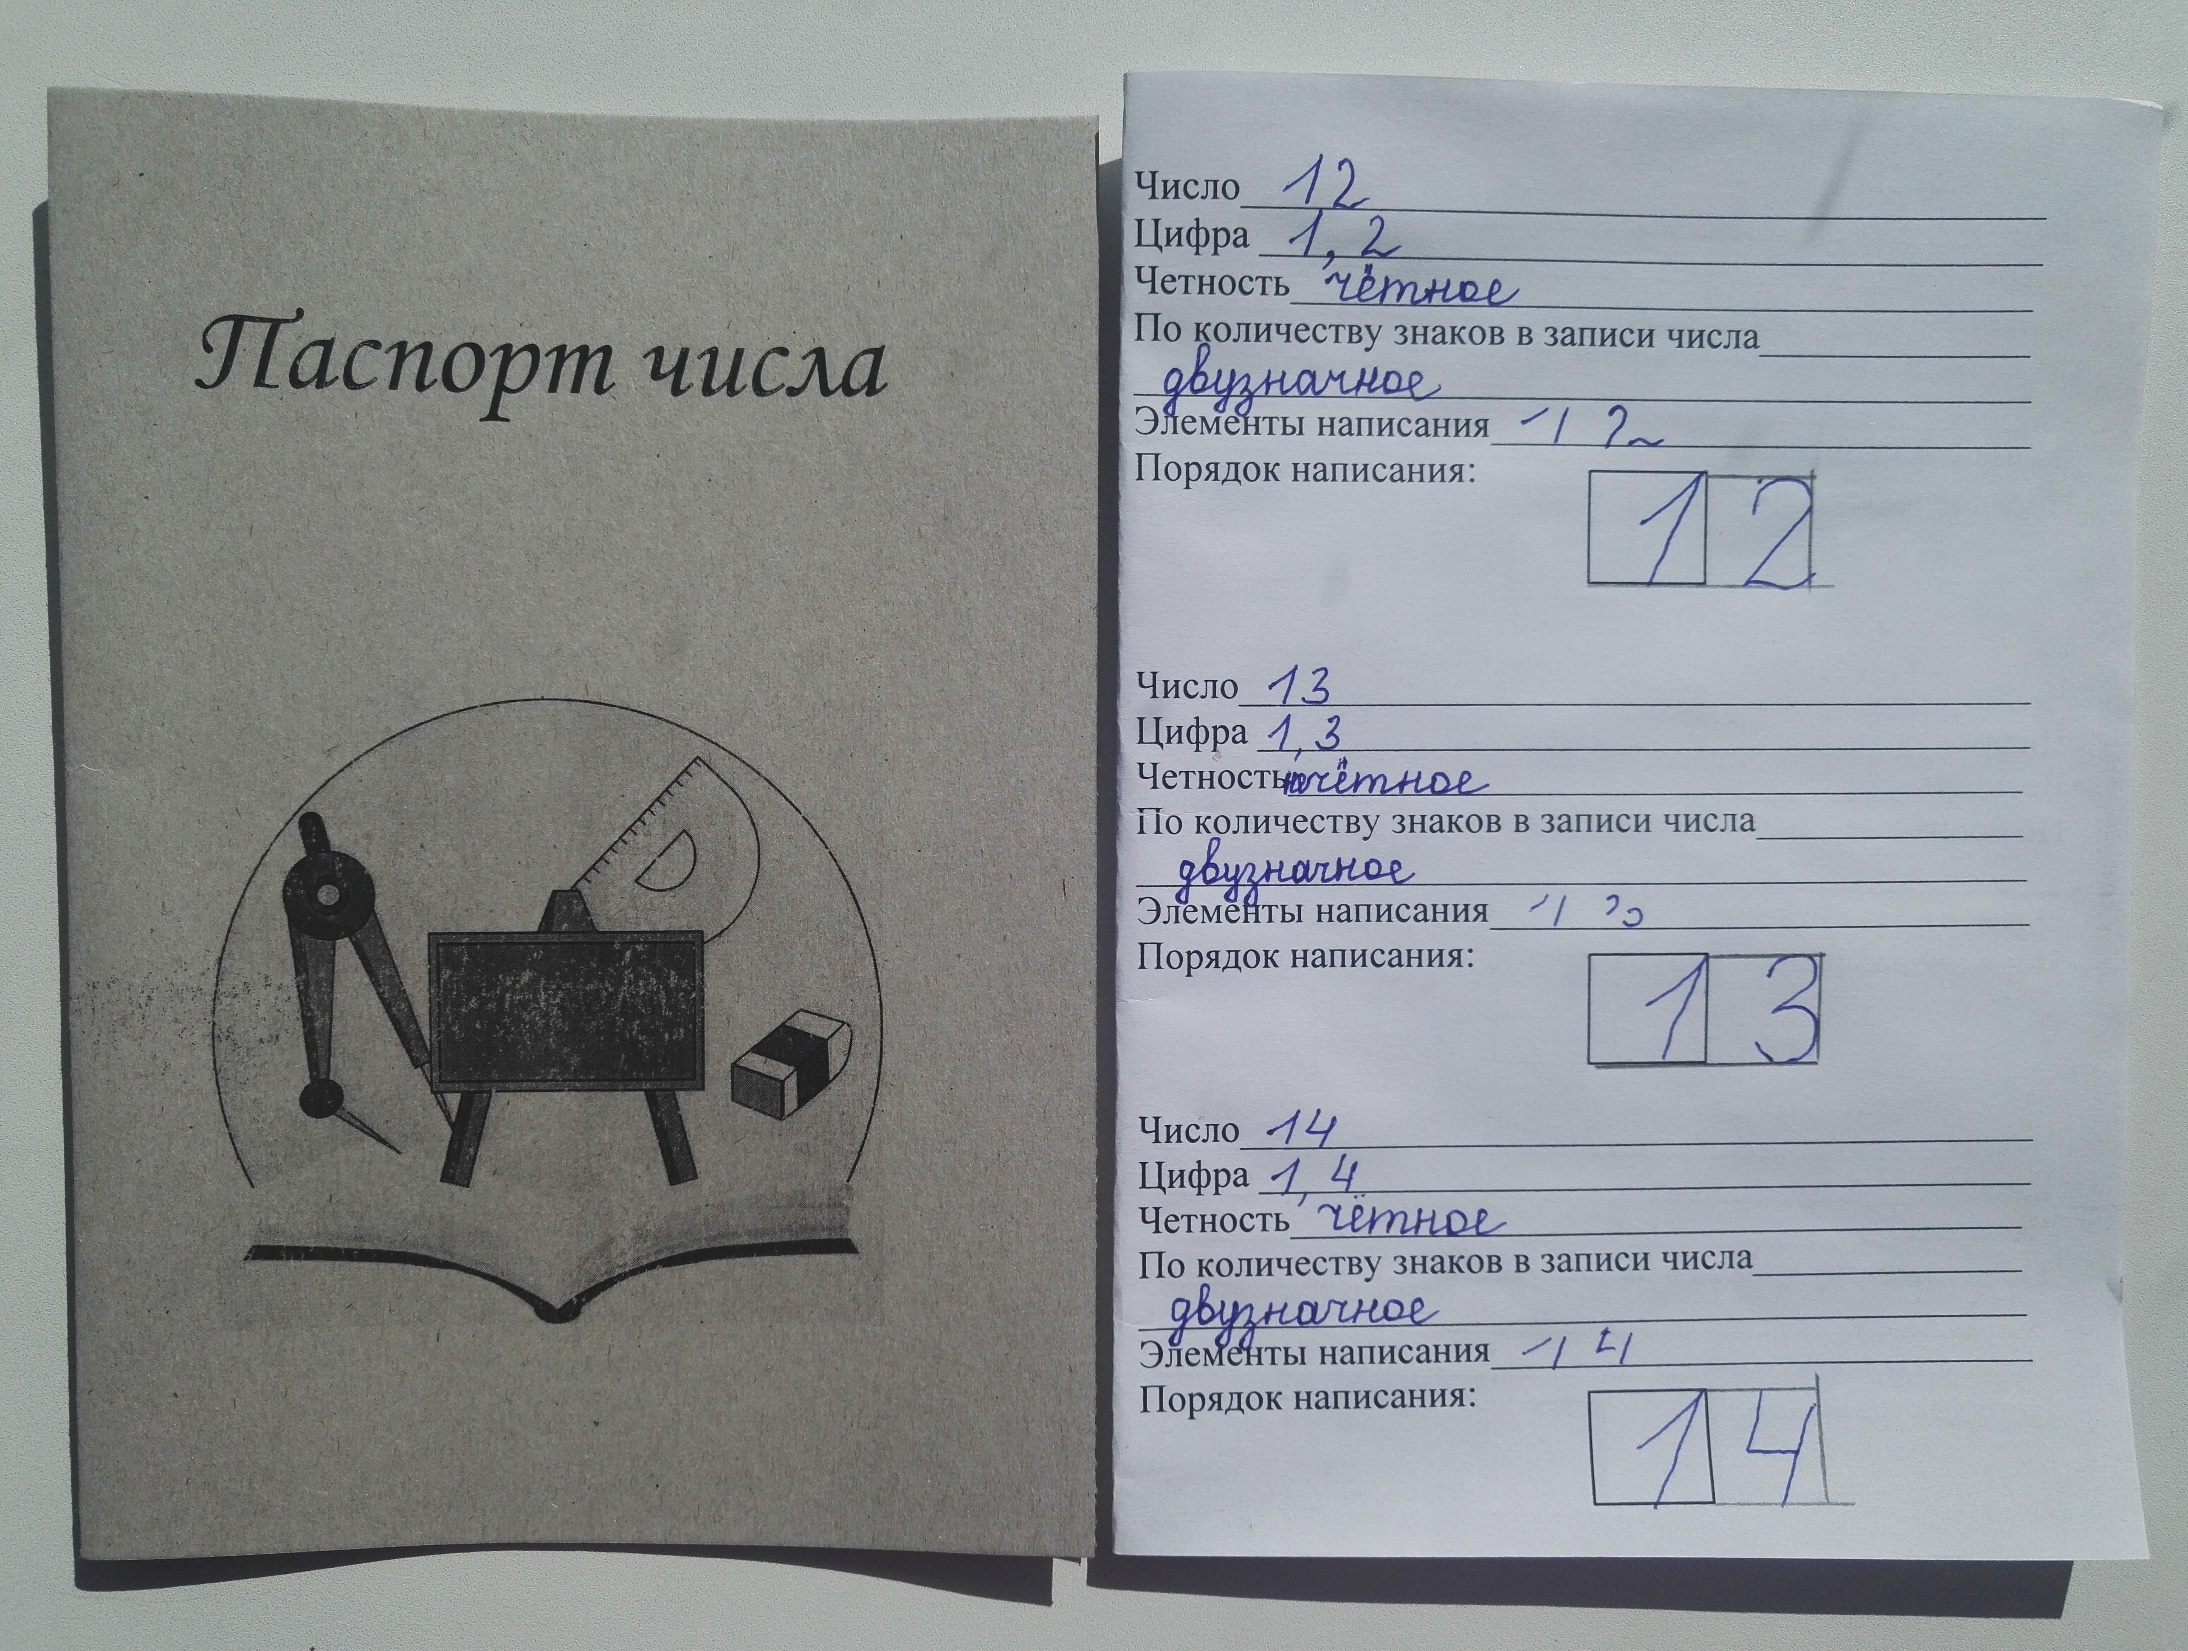 Паспорт числа
Число 12
Цифра 1, 2
Четность чётное
По количеству знаков в записи числа
двузначное
Элементы написания 1 2
Порядок написания:
1 2
Число 13
Цифра 1, 3
Четность нечётное
По количеству знаков в записи числа
двузначное
Элементы написания 1 3
Порядок написания:
1 3
Число 14
Цифра 1, 4
Четность чётное
По количеству знаков в записи числа
двузначное
Элементы написания 1 4
Порядок написания:
1 4